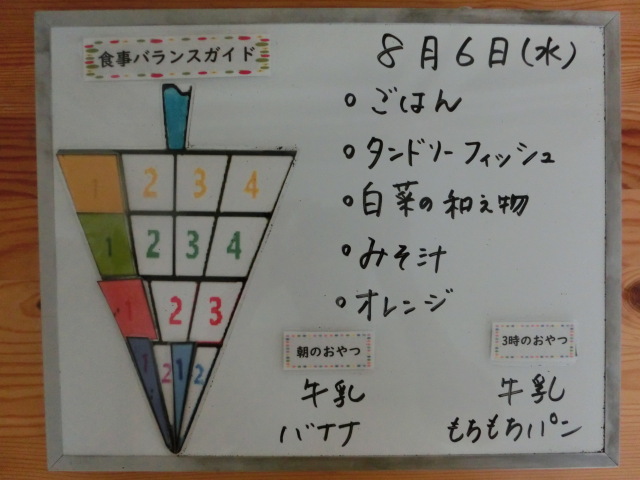 食事バランスガイド
8月6日(水)
○ごはん
○タンドリーフィッシュ
○白菜の和え物
○みそ汁
○オレンジ
1 2 3 4
1 2 3 4
1 2 3
1 2 1 2
朝のおやつ
牛乳
バナナ
3時のおやつ
牛乳
もちもちパン